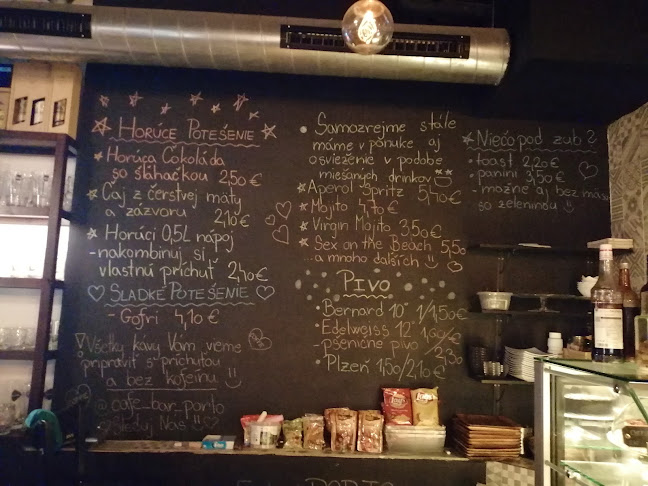 HORÚCE POTEŠENIE
HORÚCA ČOKOLÁDA
SO ŠĽAHAČKOU 2,50€
ČAJ Z ČERSTVEJ MÄTY
A ZÁZVORU 2,10€
HORÚCI 0,5L NÁPOJ
- NAKOMBINUJ SI
VLASTNÚ PRÍCHUŤ 2,40€
SLADKÉ POTEŠENIE
- GOFRI 4,10€
VŠETKY KÁVY VÁM VIEME
PRIPRAVIŤ S PRÍCHUŤOU
A BEZ KOFEINU
@cafe_bar_porto
SLEDUJ NÁS !!
SAMOZREJME STÁLE
MÁME V PONUKE AJ
OSVIEŽENIE V PODOBE
MIEŠANÝCH DRINKOV
APEROL SPRITZ 5,40€
MOJITO 4,70€
VIRGIN MOJITO 3,50€
SEX ON THE BEACH 5,50
...A MNOHO ĎALŠÍCH
PIVO
BERNARD 10° 1/1,50€
EDELWEISS 12° 1,60€/
- PŠENIČNÉ PIVO 2,30
PLZEŇ 1,50/2,10€
NIEČO POD ZUB?
- TOAST 2,20€
- PANINI 3,50€
- MOŽNÉ AJ BEZ MÄSA
SO ZELENINOU